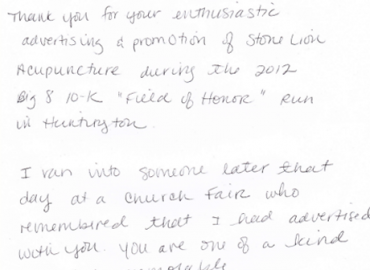 Thank you for your enthusiastic
advertising & promotion of Stone Lion
Acupuncture during the 2012
Big 8 10-K "Field of Honor" Run
in Huntington.
I ran into someone later that
day at a Church Fair who
remembered that I had advertised
with you. You are one of a kind